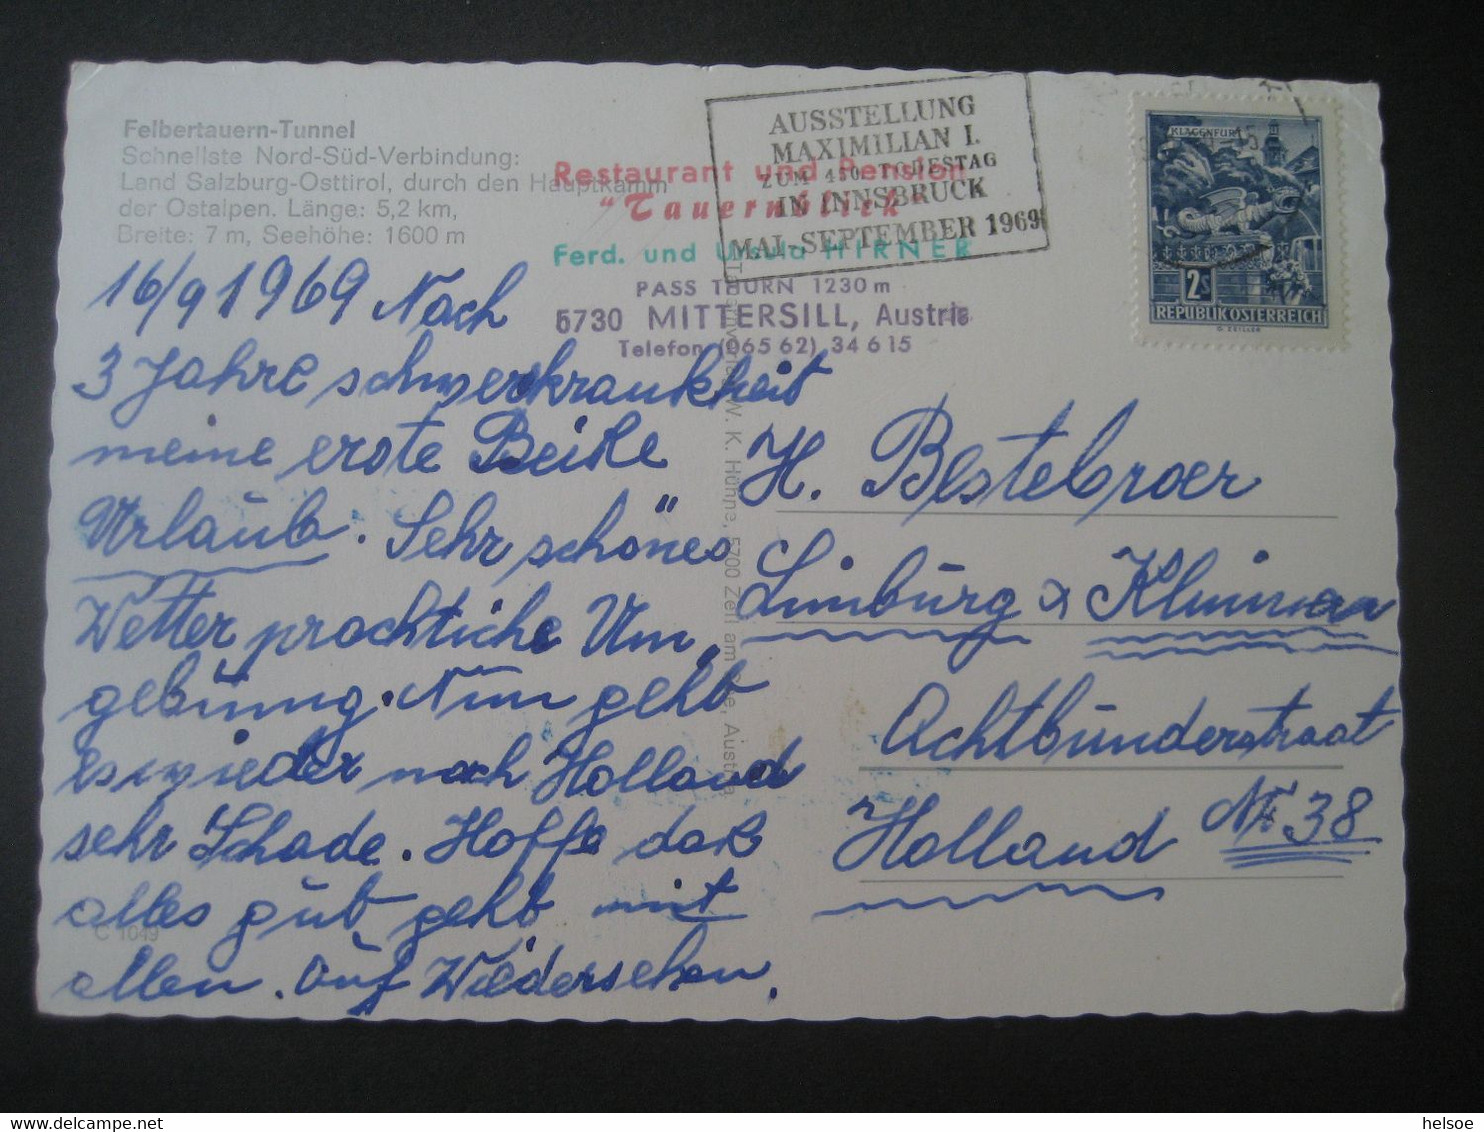 Felbertauern-Tunnel
Schnellste Nord-Süd-Verbindung:
Land Salzburg-Osttirol, durch den Hauptkamm
der Ostalpen. Länge: 5,2 km,
Breite: 7 m, Seehöhe: 1600 m
Restaurant und Pension
"Tauernblick"
Ferd. und Ursula HIRNER
PASS THURN 1230 m
5730 MITTERSILL, Austria
Telefon (065 62) 34 6 15
AUSSTELLUNG
MAXIMILIAN I.
ZUM 450. TODESTAG
IN INNSBRUCK
MAI-SEPTEMBER 1969
KLAGENFURT
2S
REPUBLIK OSTERREICH
G. ZEILLER
16/9 1969 Nach
3 Jahre schwerkrankheit
meine erste Beiße
Urlaub. Sehr schönes
Wetter prachtiche Um
gebung. Nun geht
es wieder nach Holland
sehr Schade. Hoffe daß
alles gut geht mit
allen. Auf Wiedersehen.
C 1049
W. K. Hühne, 5700 Zell am See, Austria
H. Bestebroer
Limburg
Achtbunderstraat
Holland Nr 38
helsoe
Delcampe.net